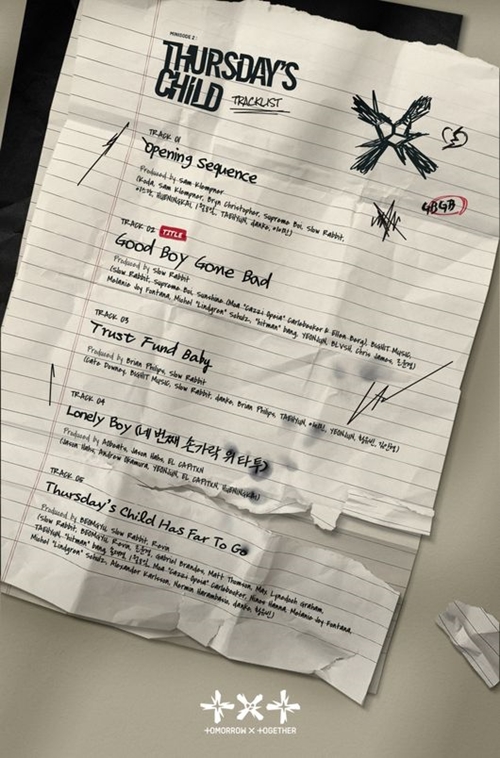 MINISODE 2:
THURSDAY'S
CHILD TRACKLIST
TRACK 01
Opening Sequence
Produced by Sam Klempner
(Koda, Sam Klempner, Bryn Christopher, Supreme Boi, Slow Rabbit,
HUENINGKAI, TAEHYUN, danke,
GBGB
TRACK 02 TITLE
Good Boy Gone Bad
Produced by Slow Rabbit
(Slow Rabbit, Supreme Boi, Sunshine (Moa "Cazzi Opeia" Carlebecker & Ellen Berg), BIGHIT MUSIC,
Melanie Joy Fontana, Michel "Lindgren" Schulz, "hitman" bang, YEONJUN, BLVSH, Chris James,
TRACK 03
Trust Fund Baby
Produced by Brian Phillips, Slow Rabbit
(Cate Downey, BIGHIT MUSIC, Slow Rabbit, danke, Brian Phillips, TAEHYUN, YEONJUN,
TRACK 04
Lonely Boy (네 번째 손가락 위 타투)
Produced by Aobeats, Jason Hahs, EL CAPITXN
(Jason Hahs, Andrew Okamura, YEONJUN, EL CAPITXN, HUENINGKAI)
TRACK 05
Thursday's Child Has Far To Go
Produced by BEOMGYU, Slow Rabbit, Revin
(Slow Rabbit, BEOMGYU, Revin, Gabriel Brandes, Matt Thomson, Max Lynedoch Graham,
TAEHYUN, "hitman" bang, Moa "Cazzi Opeia" Carlebecker, Ninos Hanna, Melanie Joy Fontana,
Michel "Lindgren" Schulz, Alexander Karlsson, danke,
TOMORROW X TOGETHER